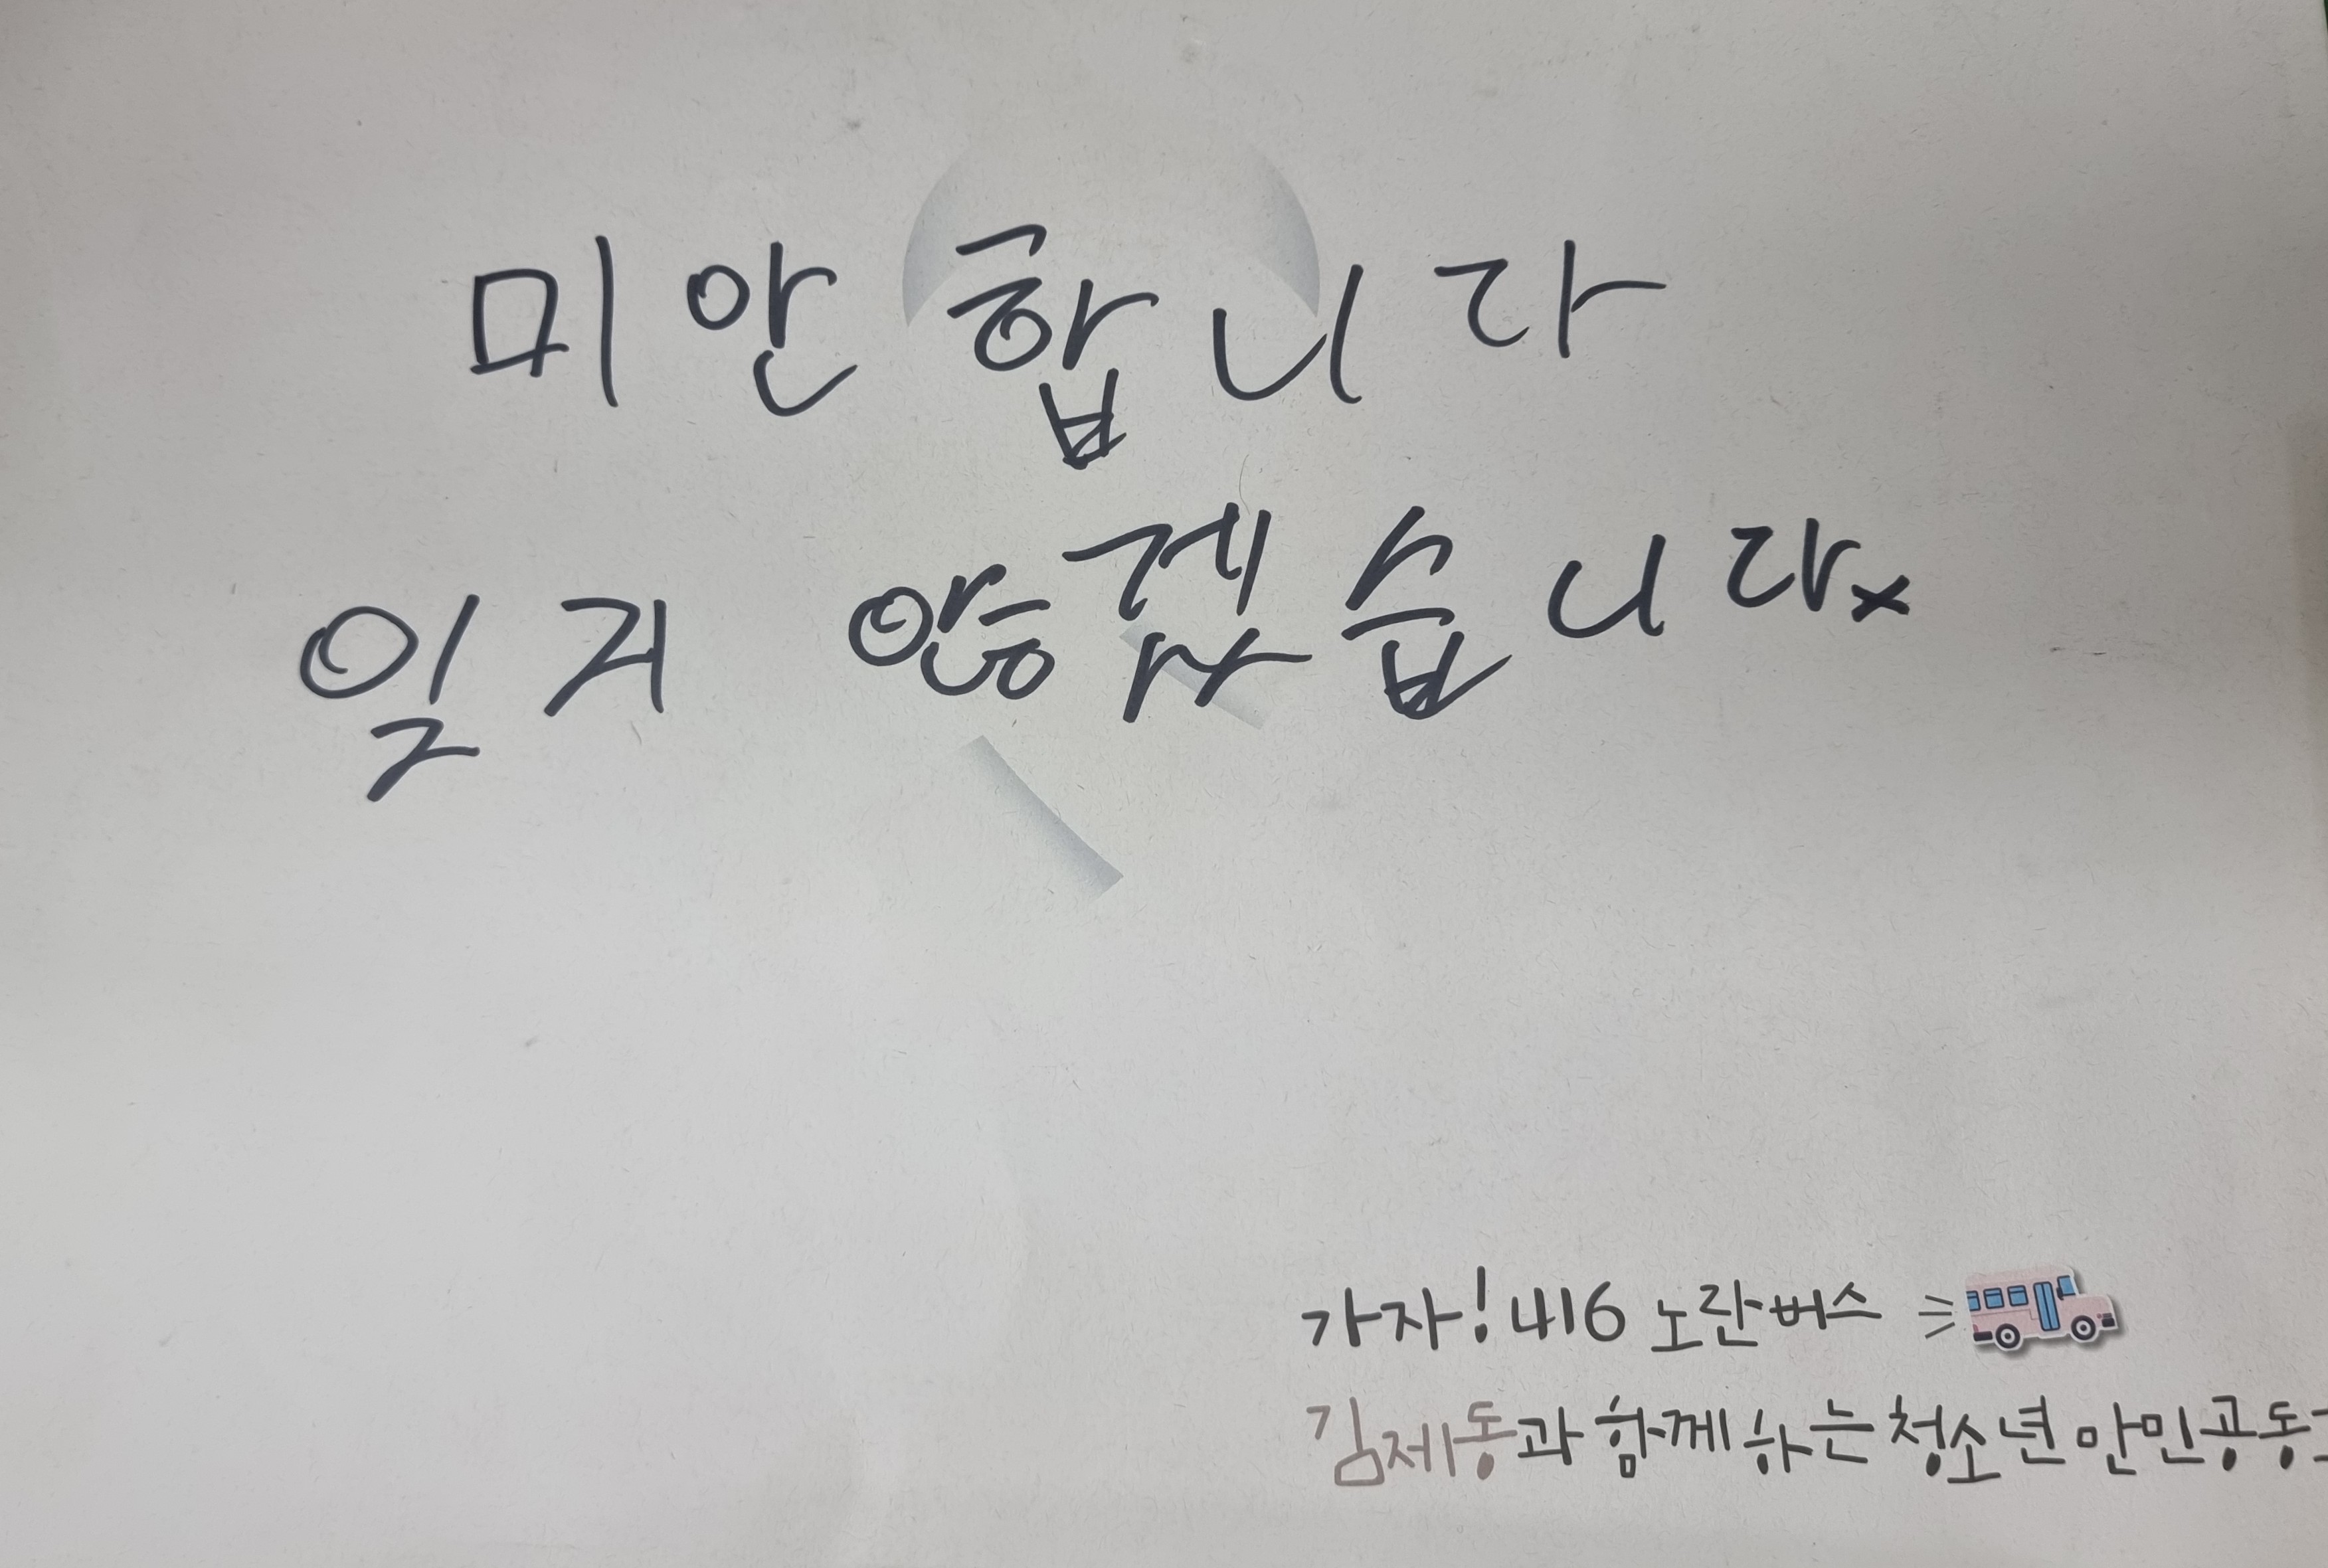 미안합니다
잊지 않겠습니다
가자! 416 노란버스
김제동과 함께하는 청소년 만민공동